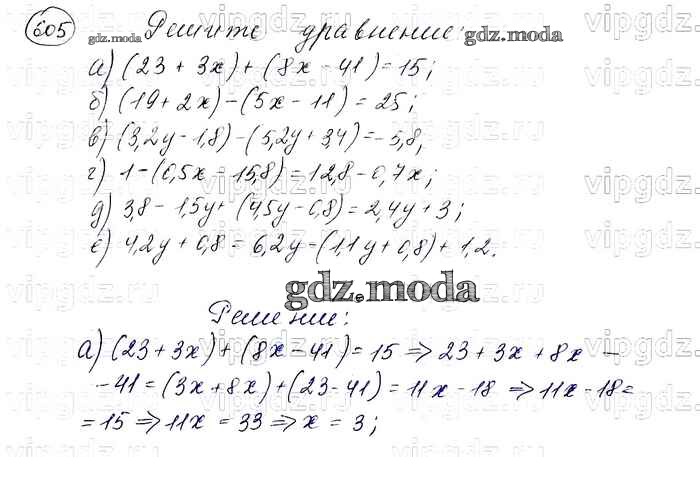 605 gdz.moda Решите уравнение: gdz.moda
а) (23 + 3x) + (8x - 41) = 15;
б) (19 + 2x) - (5x - 11) = 25;
в) (3,2y - 1,8) - (5,2y + 3,4) = -5,8;
г) 1 - (0,5x - 15,8) = 12,8 - 0,7x;
д) 3,8 - 1,5y + (4,5y - 0,8) = 2,4y + 3;
е) 4,2y + 0,8 = 6,2y - (1,1y + 0,8) + 1,2.
gdz.moda
Решение:
а) (23 + 3x) + (8x - 41) = 15 ⇒ 23 + 3x + 8x -
- 41 = (3x + 8x) + (23 - 41) = 11x - 18 ⇒ 11x - 18 =
= 15 ⇒ 11x = 33 ⇒ x = 3;
vipgdz.ru